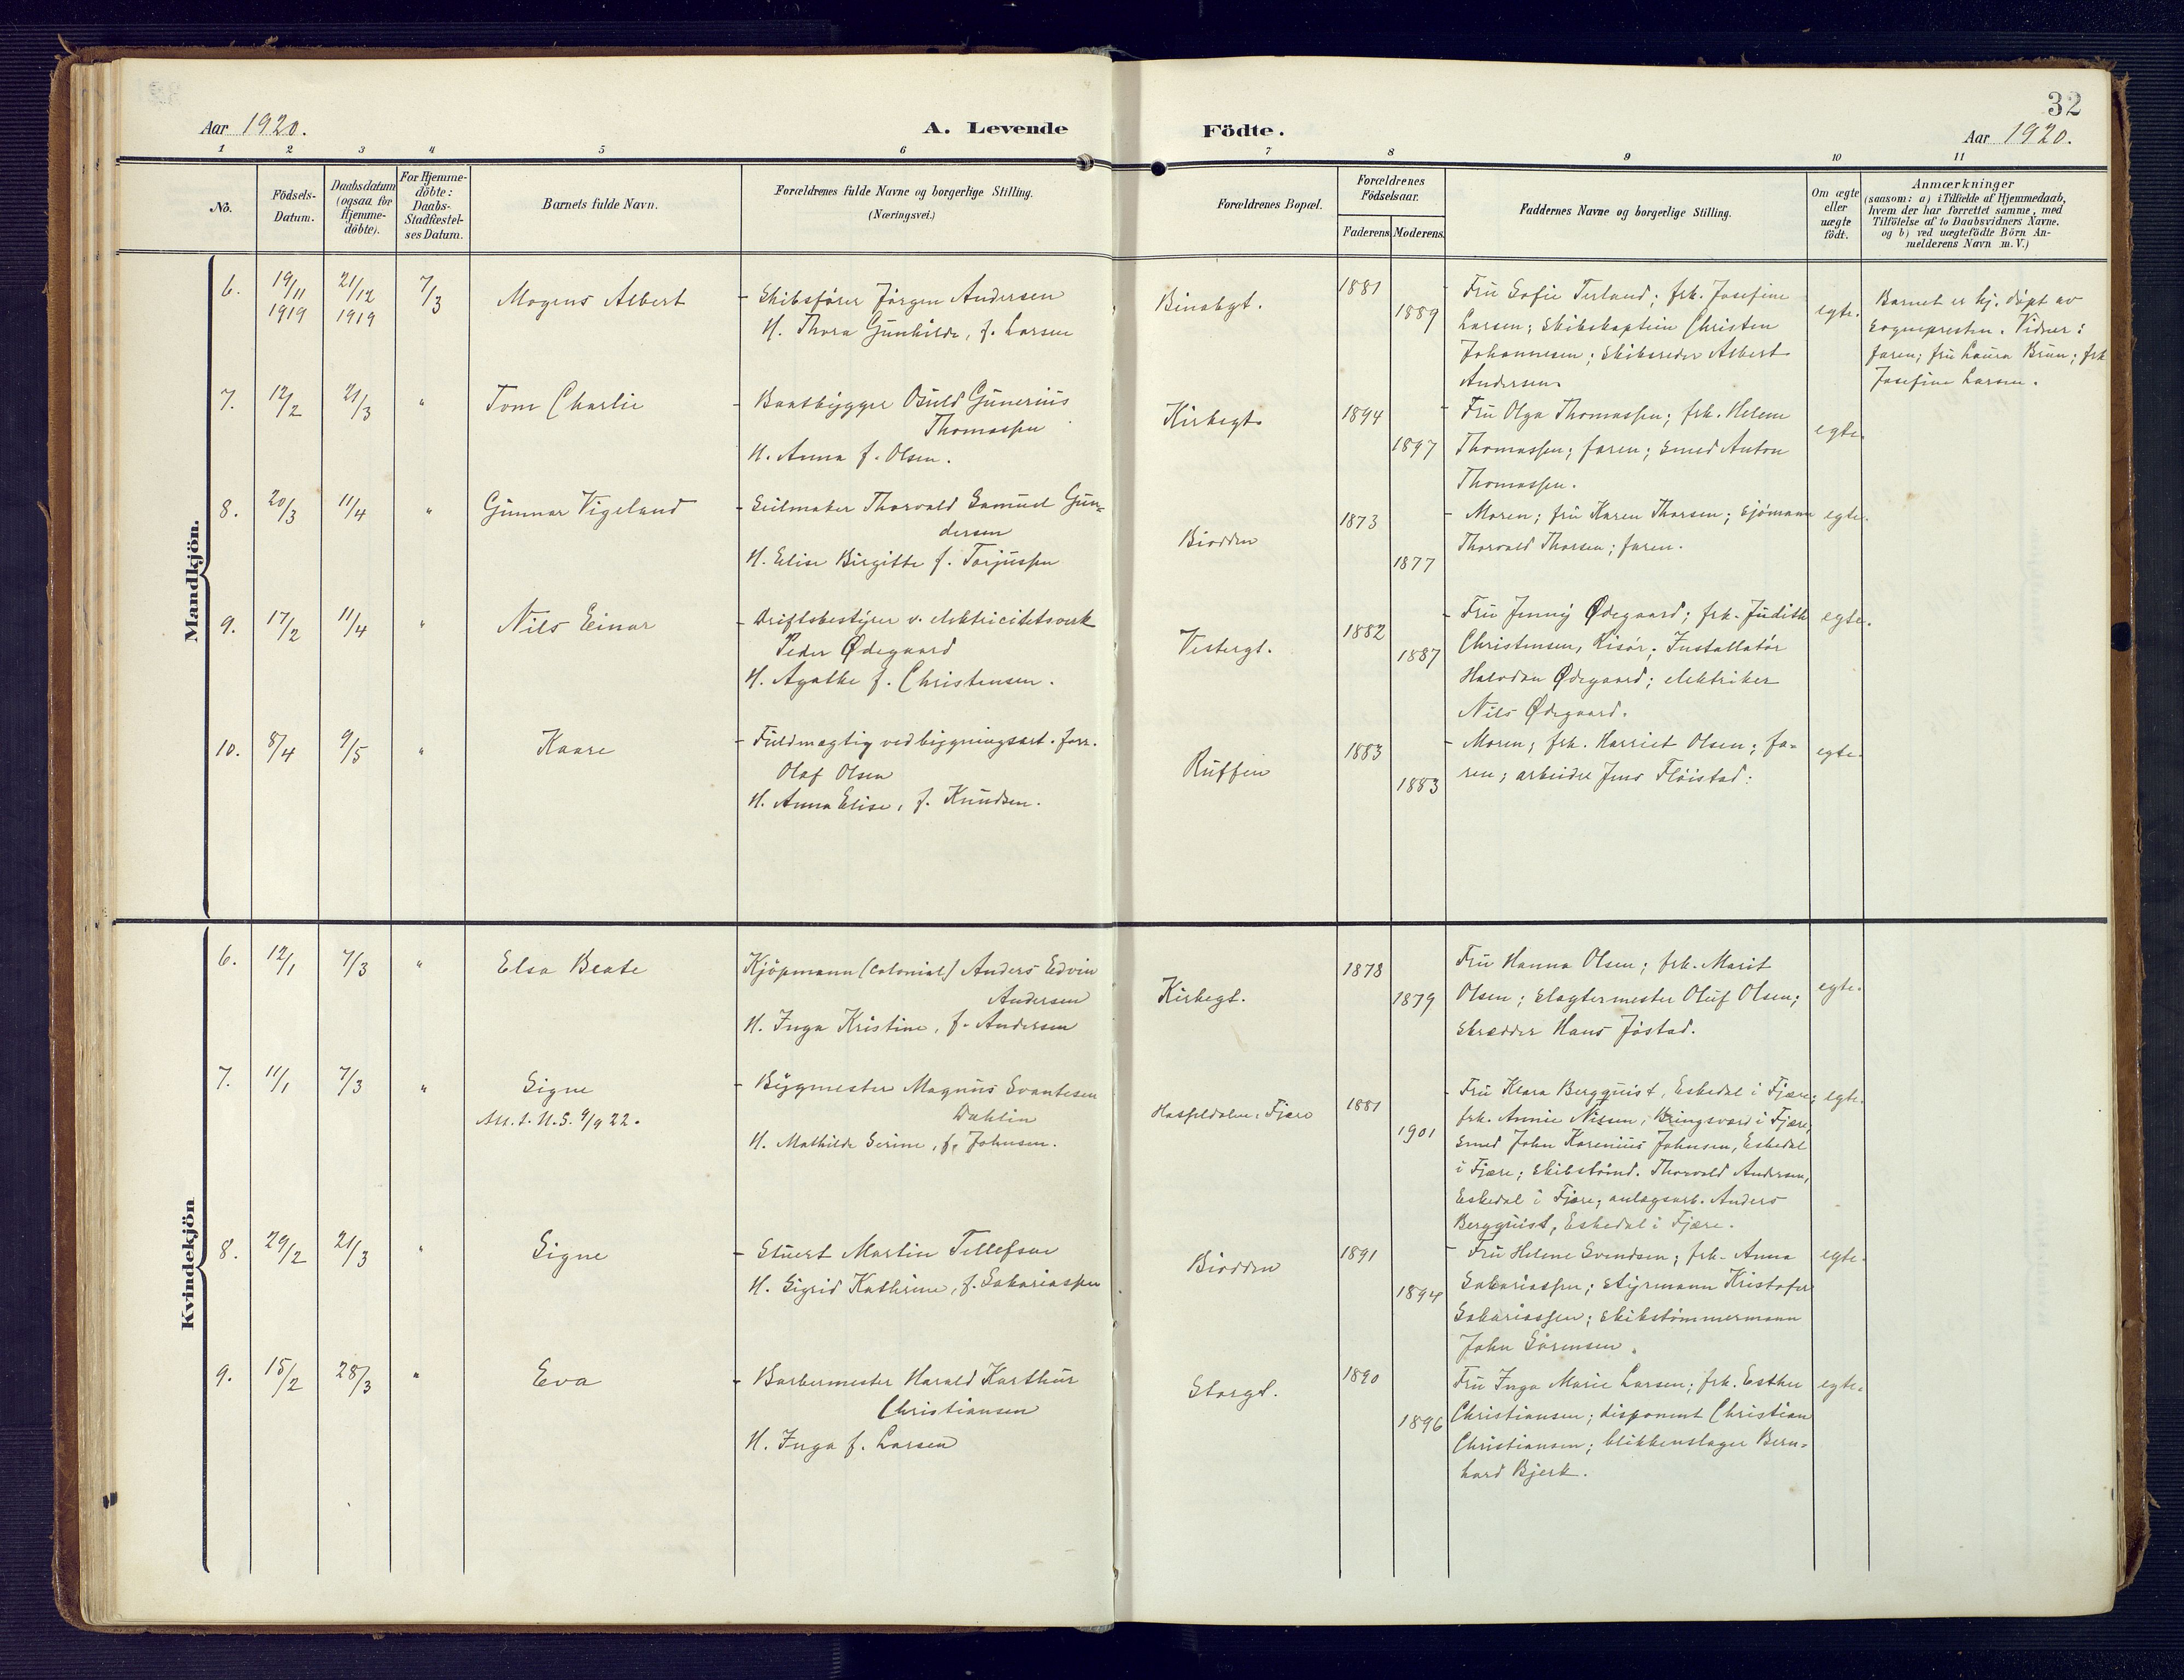 32
Aar 1920.
A. Levende
Födte.
Aar 1920.
1 2 3 4 5 6 7 8 9 10 11
No.
Födsels-
Datum.
Daabsdatum
(ogsaa for
Hjemme-
döbte).
For Hjemme-
döbte:
Daabs-
Stadfæstel-
ses Datum.
Barnets fulde Navn.
Forældrenes fulde Navne og borgerlige Stilling.
(Næringsvei.)
Forældrenes Bopæl.
Forældrenes
Födselsaar.
Faderens. Moderens.
Faddernes Navne og borgerlige Stilling.
Om ægte
eller
uægte
födt.
Anmærkninger
(saasom: a) i Tilfælde af Hjemmedaab,
hvem der har forrettet samme, med
Tilföielse af to Daabsvidners Navne.
og b) ved uægtefödte Börn An-
melderens Navn m. V.)
Mandkjön.
6.
19/11
1919
21/12
1919
7/3
Mogens Albert
- Skibsfører Jørgen Andersen
H. Thora Gunhilde, f. Larsen
Binabgt.
1881
1889
- Fru Sofie Terland; frk. Josefine
Larsen; Skibskaptein Christen
Johannesen; Skibsreder Albert
Andersen.
egte.
Barnet er hj. døpt av
sognepresten. Vidner:
faren; fru Laura Brun; frk
Josefine Larsen.
7.
12/2
21/3
"
Tom Charlie
- Baatbygger Buld Gunerius
Thomassen
H. Anna f. Olsen.
Kirkegt.
1894
1897
- Fru Olga Thomassen; frk. Helene
Thomassen; faren; smed Anton
Thomassen.
egte.
8.
20/3
11/4
"
Gunnar Vigeland
- Seilmaker Thorvald Samuel Gun-
dersen
H. Elise Birgitte f. Torjussen
Biodden
1873
1877
- Moren; fru Karen Thorsen; sjømann
Thorvald Thorsen; faren.
egte.
9.
17/2
11/4
"
Nils Einar
- Driftsbestyrer v. elektricitetsverk
Peder Ødegaard
H. Agathe f. Christensen.
Vestergt.
1882
1887
- Fru Jenny Ødegaard; frk. Judith
Christensen, Risør; Installatør
Halvdan Ødegaard; elektriker
Nils Ødegaard.
egte.
10.
8/4
9/5
"
Kaare
- Fuldmægtig ved bygningsart. forr.
Olaf Olsen
H. Anna Elise, f. Knudsen.
Ruffen
1883
1883
- Moren; frk. Harriet Olsen; fa-
ren; arbeider Jens Fløistad.
egte.
Kvindekjön
6.
12/1
7/3
"
Elsa Beate
Kjøpmann (Colonial) Anders Edvin
Andersen
H. Inga Kristine, f. Andersen
Kirkegt.
1878
1879
Fru Hanna Olsen; frk. Marit
Olsen; slagtermester Oluf Olsen;
skrædder Hans Jøstad.
egte.
7.
11/1
7/3
"
Signe
Att. t. U.S. 9/9 22.
- Bygmester Magnus Svantesen
Dahlin
H. Mathilde Serine, f. Johnsen.
Hasseldalen i Fjære
1881
1901
- Fru Klara Bergquist, Eskedal i Fjære;
frk. Annie Nissen, Bringsværd i Fjære;
smed John Karenius Johnsen, Eskedal
i Fjære; skibstømd. Thorvald Andersen,
Eskedal i Fjære; anlægsarb. Anders
Bergquist, Eskedal i Fjære.
egte.
8.
29/2
21/3
"
Signe
- Stuert Martin Tellefsen
H. Sigrid Kathrine, f. Sakariassen
Biodden
1891
1894
- Fru Helene Svendsen; frk. Anna
Sakariassen; styrmann Kristofer
Sakariassen; skibstømmermann
John Sørensen.
egte.
9.
15/2
28/3
"
Eva
- Barbermester Harald Karthur
Christiansen
H. Inga f. Larsen
Storgt.
1890
1896
Fru Inga Marie Larsen; frk. Esther
Christiansen; disponent Christian
Christiansen; blikkenslager Bern-
hard Bjerk.
egte.